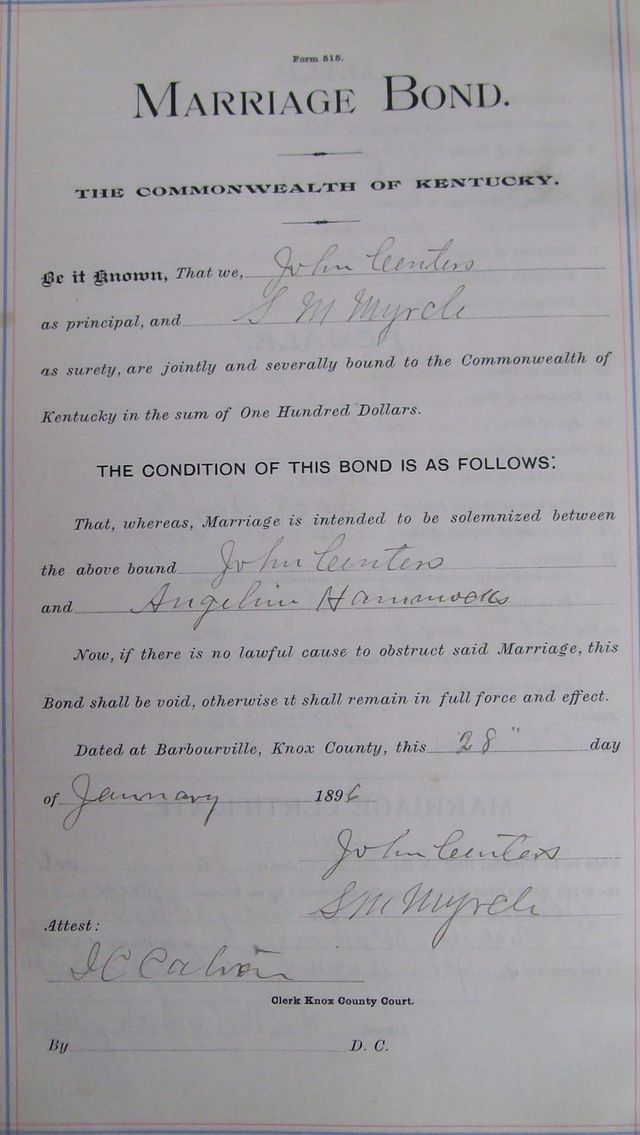 Form 515.
MARRIAGE BOND.
THE COMMONWEALTH OF KENTUCKY.
Be it Known, That we, John Centers
as principal, and S M Myrcle
as surety, are jointly and severally bound to the Commonwealth of
Kentucky in the sum of One Hundred Dollars.
THE CONDITION OF THIS BOND IS AS FOLLOWS:
That, whereas, Marriage is intended to be solemnized between
the above bound John Centers
and Angelin Hammocks
Now, if there is no lawful cause to obstruct said Marriage, this
Bond shall be void, otherwise it shall remain in full force and effect.
Dated at Barbourville, Knox County, this 28" day
of January 1896
John Centers
S M Myrcle
Attest:
Clerk Knox County Court.
By D. C.